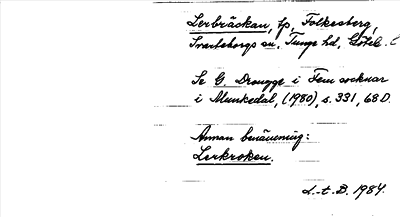 Lerbräckan, fp, Folkesberg,
Svarteborgs sn, Tunge hd, Göteb.
Se G. Drougge i Fem socknar
i Munkedal, (1980), s. 331, 68 D.
Annan benämning:
Lerkroken.
L.-t. B. 1984.